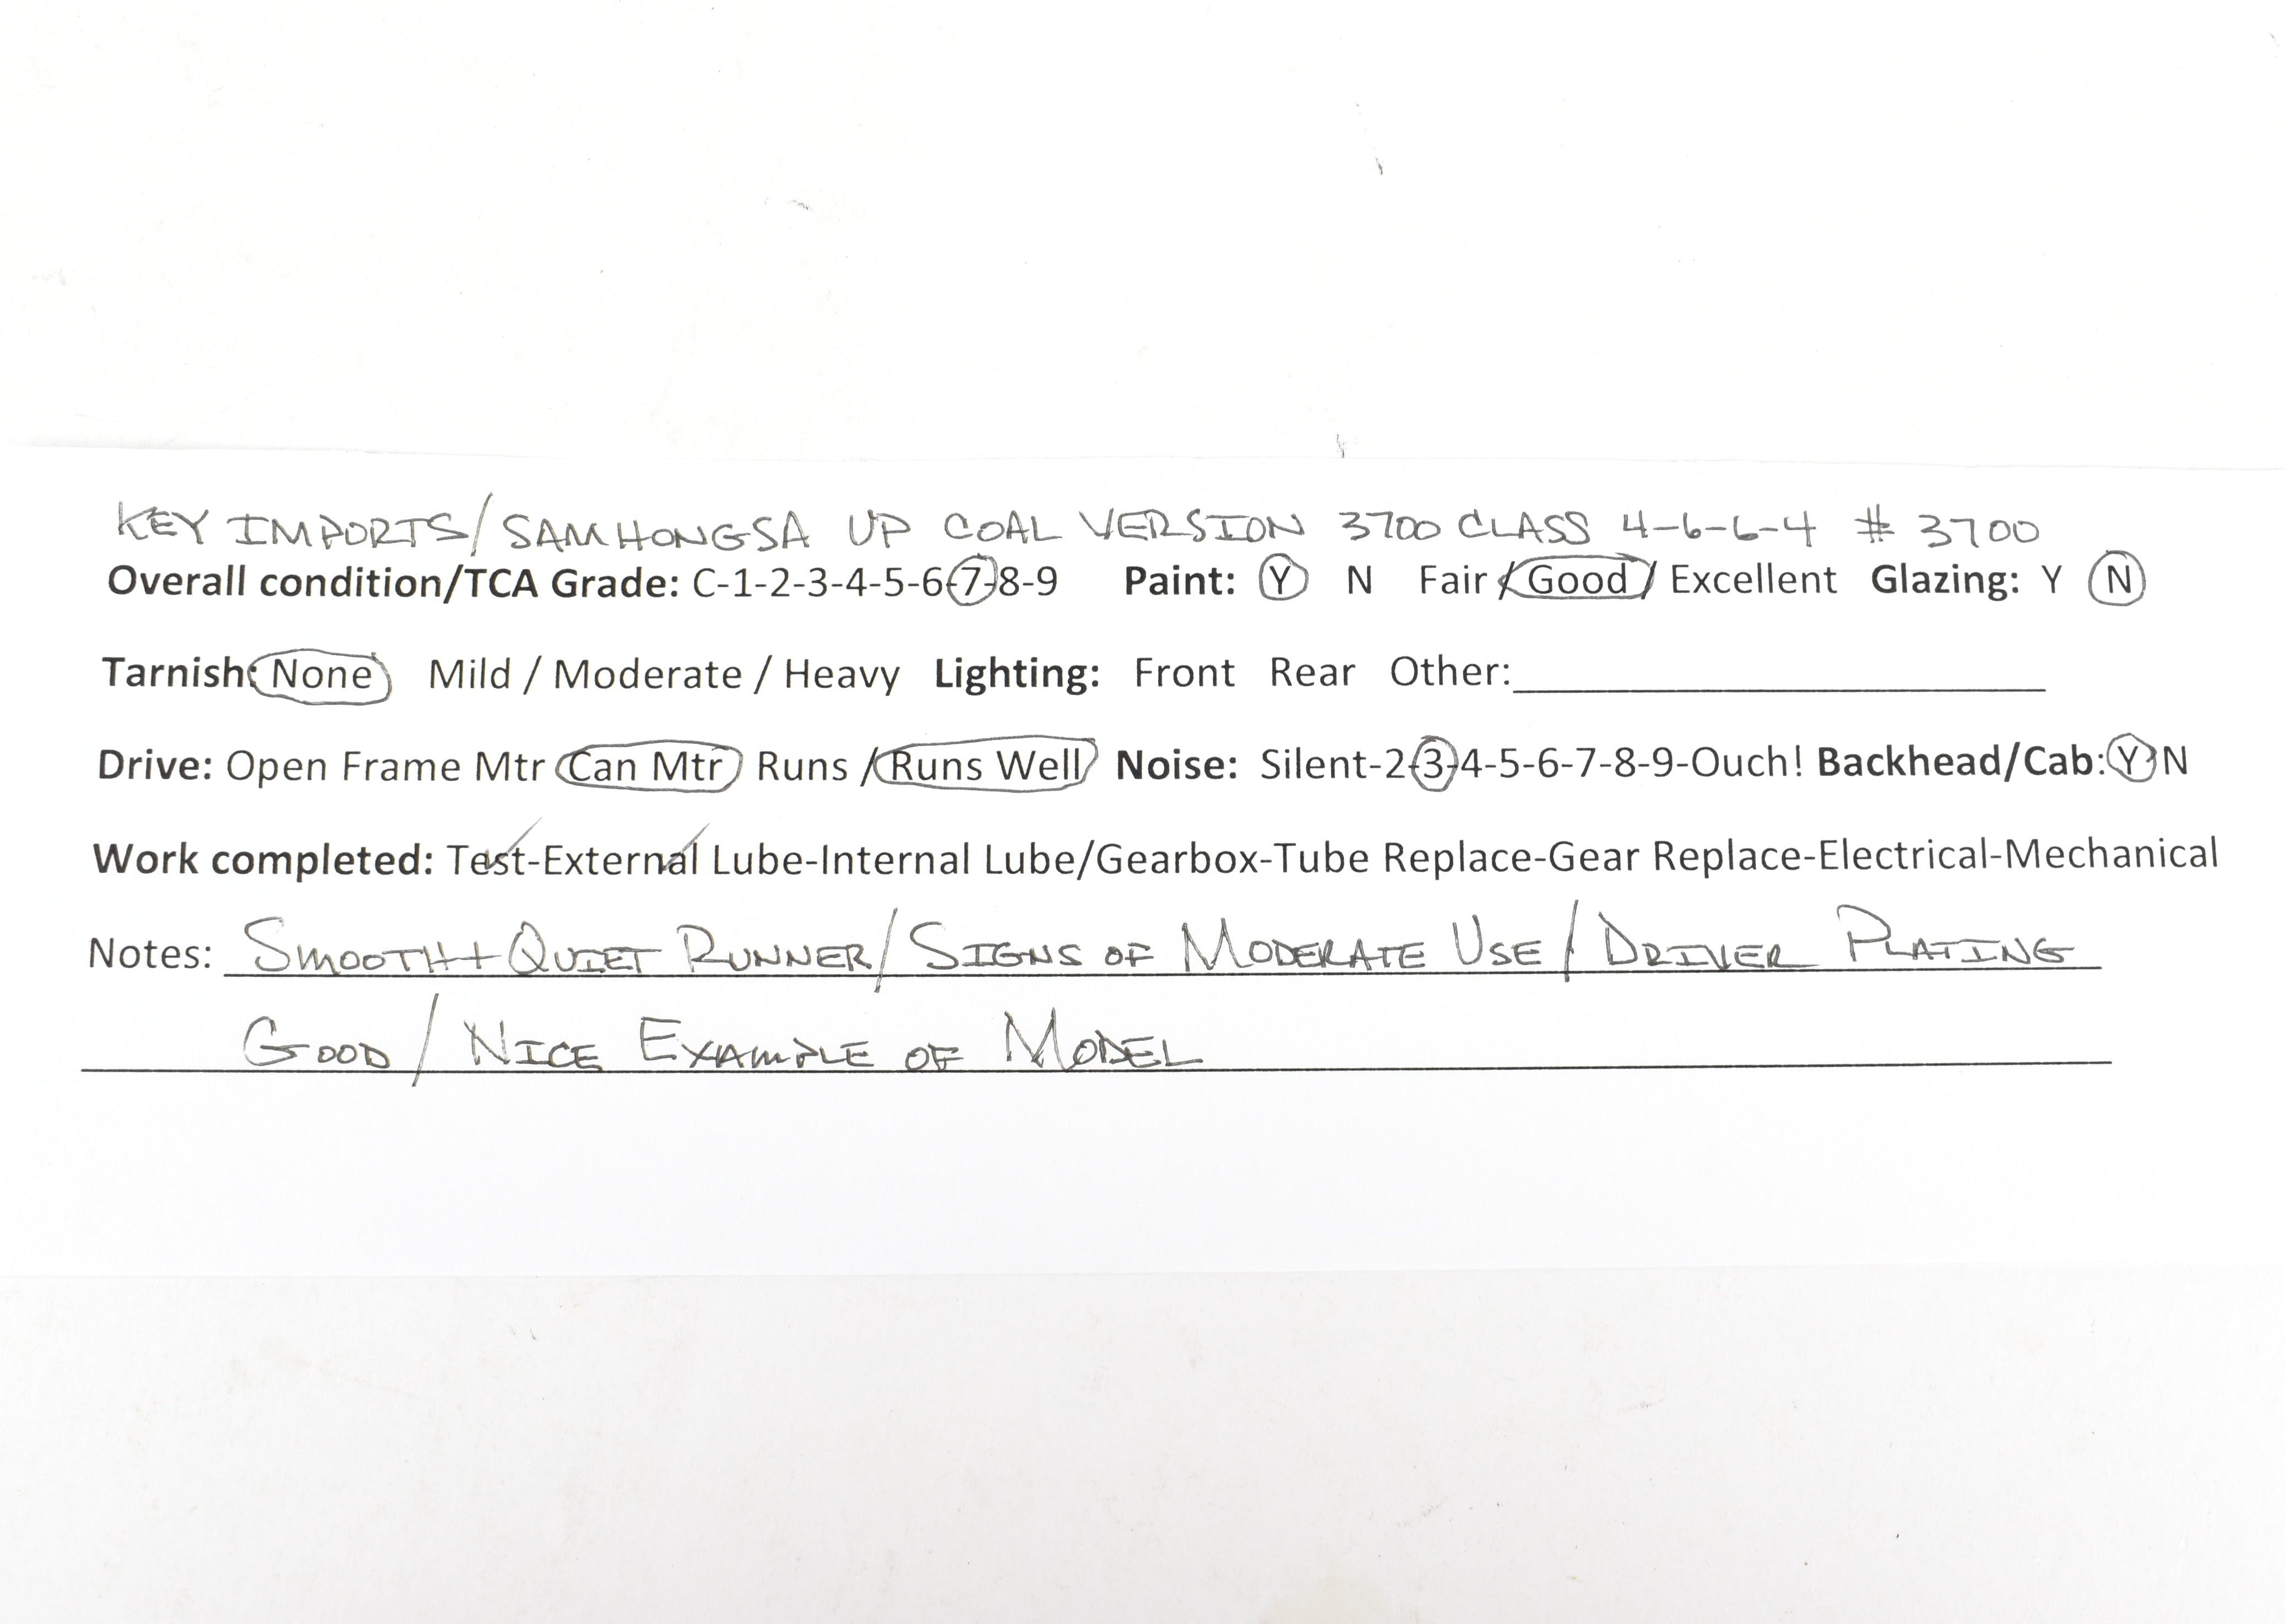 KEY IMPORTS/SAMHONGSA UP COAL VERSION 3700 CLASS 4-6-6-4 # 3700
Overall condition/TCA Grade: C-1-2-3-4-5-6-7-8-9 Paint: Y N Fair / Good / Excellent Glazing: Y N
Tarnish: None Mild / Moderate / Heavy Lighting: Front Rear Other:
Drive: Open Frame Mtr Can Mtr Runs / Runs Well Noise: Silent-2-3-4-5-6-7-8-9-Ouch! Backhead/Cab: Y N
Work completed: Test-External Lube-Internal Lube/Gearbox-Tube Replace-Gear Replace-Electrical-Mechanical
Notes: SMOOTH + QUIET RUNNER/SIGNS OF MODERATE USE/DRIVER PLATING
GOOD/NICE EXAMPLE OF MODEL